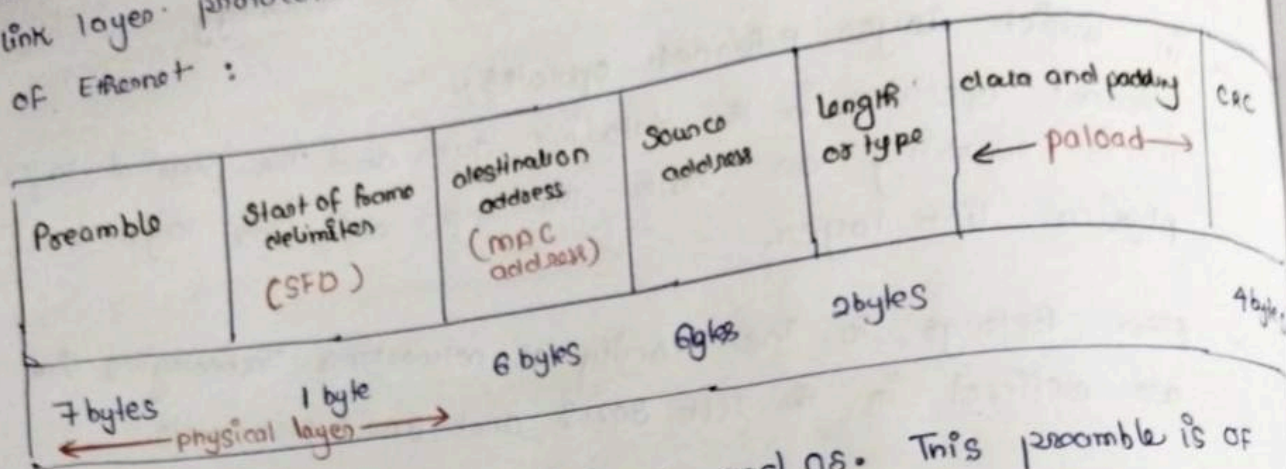 link layer
of Ethernet :
Preamble
Start of frame
delimiter
(SFD)
destination
address
(MAC
address)
Source
address
length
or type
data and padding
← paload →
CRC
7 bytes
1 byte
6 bytes
6bytes
2bytes
4 byte
← physical layer →
This preamble is of